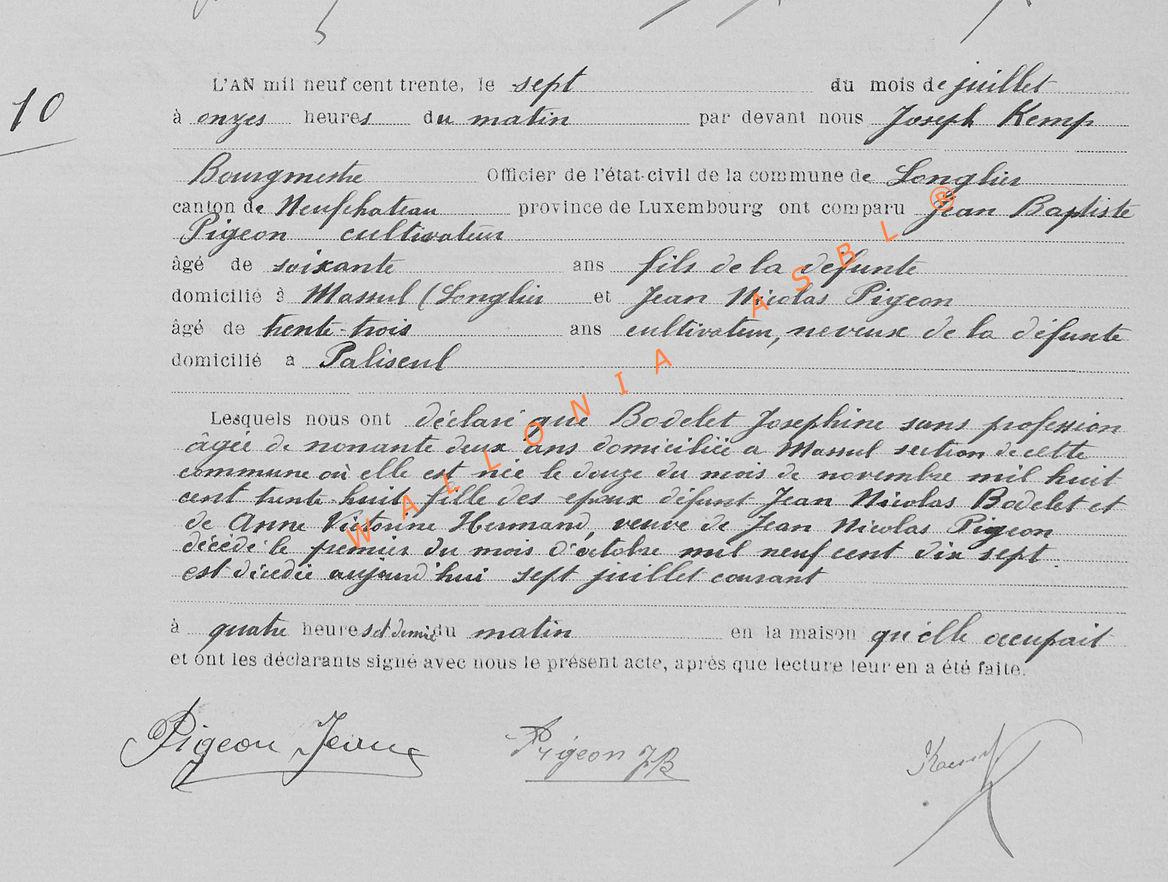 10
L'AN mil neuf cent trente, le sept du mois de juillet
à onzes heures du matin par devant nous Joseph Kemp
Bourgmestre Officier de l'état-civil de la commune de Longlier
canton de Neufchateau province de Luxembourg ont comparu Jean Baptiste
Pigeon cultivateur
âgé de soixante ans fils de la défunte
domicilié à Massul (Longlier et Jean Nicolas Pigeon
âgé de trente-trois ans cultivateur, neveux de la défunte
domicilié a Paliseul
Lesquels nous ont déclaré que Bodelet Josephine sans profession
âgée de nonante deux ans domiciliée a Massul section de cette
commune où elle est née le douze du mois de novembre mil huit
cent trente-huit fille des epoux défunt Jean Nicolas Bodelet et
de Anne Victorine Hermand, veuve de Jean Nicolas Pigeon
décédé le premier du mois d'octobre mil neuf cent dix sept.
est décédée aujourd'hui sept juillet courant
à quatre heures et demie du matin en la maison qu'elle occupait
et ont les déclarants signé avec nous le présent acte, après que lecture leur en a été faite.
Pigeon Jean Pigeon JB
WALLONIA ASBL ®